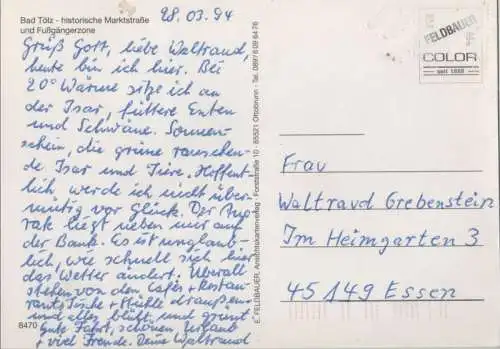 28.03.94
Bad Tölz - historische Marktstraße
und Fußgängerzone
Grüß Gott, liebe Waltraud,
heute bin ich hier. Bei
20° Wärme sitze ich an
der Isar, füttere Enten
und Schwäne. Sonnen-
schein, die grüne rauschen-
de Isar und Tiere. Hoffent-
lich werde ich nicht über-
mütig vor Glück. Der Ano-
rak liegt neben mir auf
der Bank. Es ist unglaub-
lich, wie schnell sich hier
das Wetter ändert. Überall
stehen vor den Cafés + Restau-
rants Tische + Stühle draußen
und alles blüht und grünt
gute Fahrt, schönen Urlaub
+ viel Freude. Deine Waltraud
8470
E. FELDBAUER, Ansichtskartenverlag - Forststraße 10 - 85521 Ottobrunn - Tel. 089/6 09 64 76
FELDBAUER
COLOR
seit 1888
Frau
Waltraud Grebenstein
Im Heimgarten 3
45149 Essen